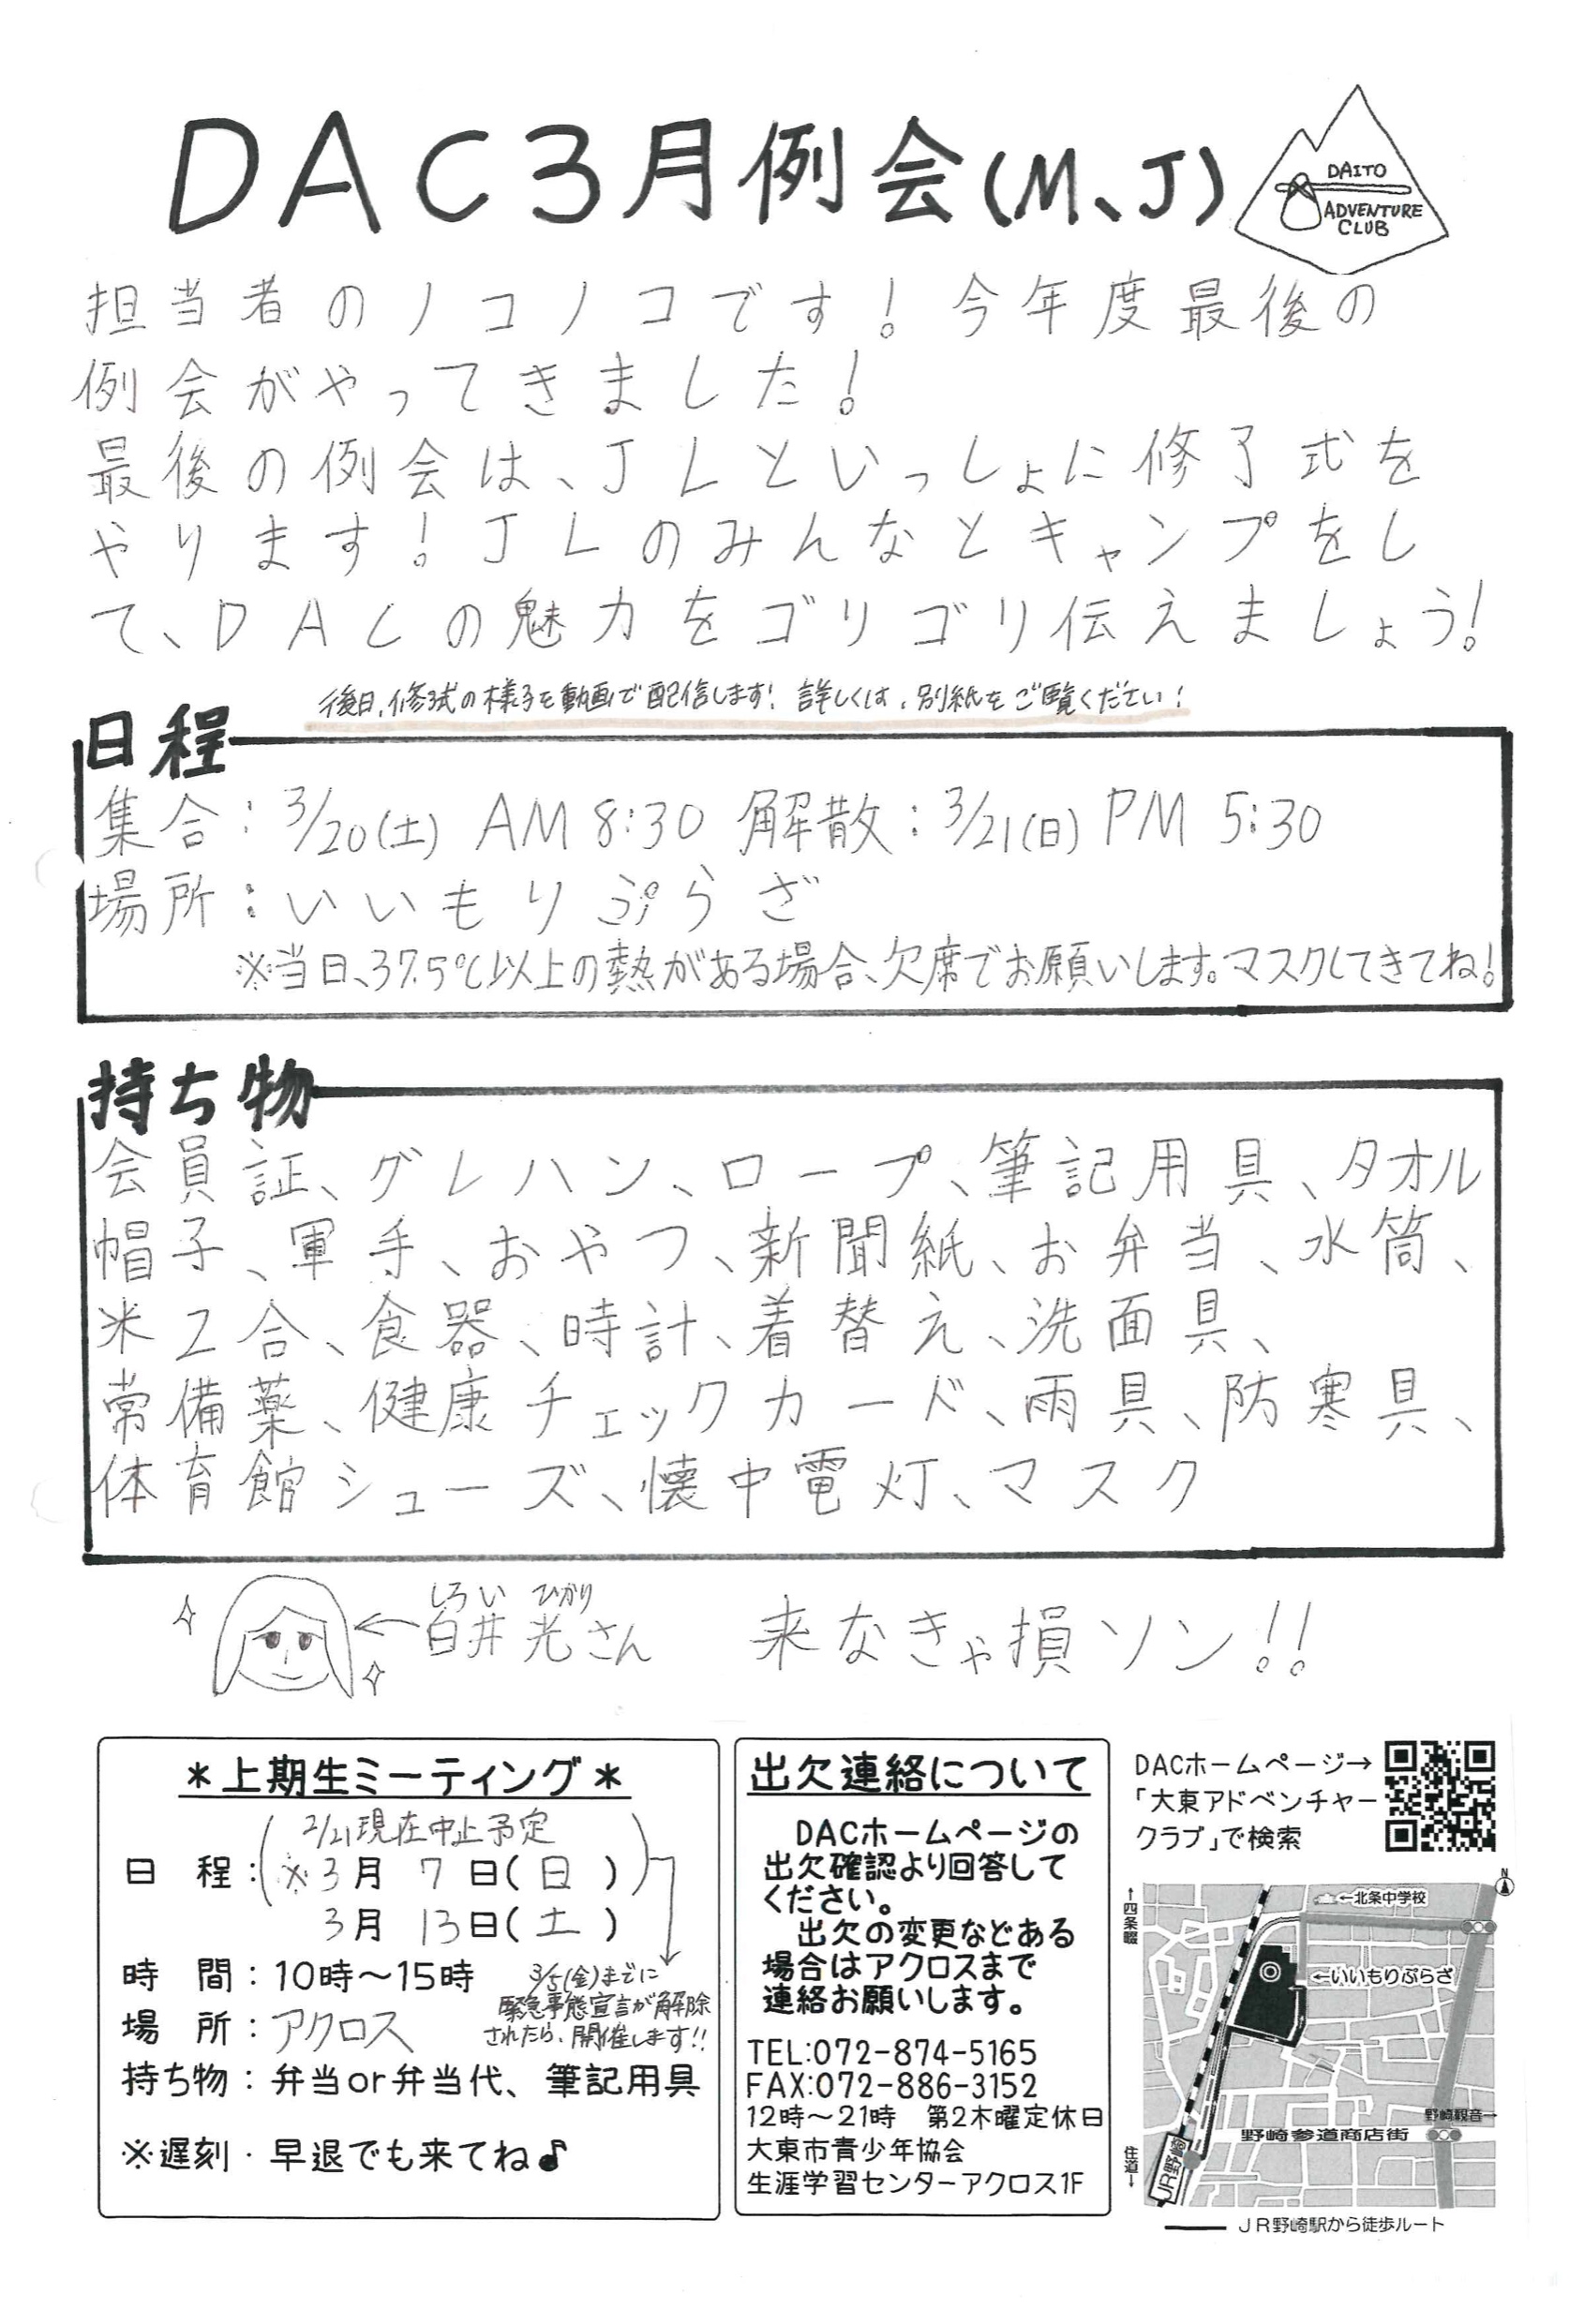 DAC3月例会(M、J)
DAITO
ADVENTURE
CLUB
担当者のノコノコです！今年度最後の
例会がやってきました！
最後の例会は、JLといっしょに修了式を
やります！JLのみんなとキャンプをし
て、DACの魅力をゴリゴリ伝えましょう！
後日、修了式の様子を動画で配信します！詳しくは、別紙をご覧ください！
日程
集合：3/20(土) AM 8:30 解散：3/21(日) PM 5:30
場所：いいもりぷらざ
※当日、37.5℃以上の熱がある場合、欠席でお願いします。マスクしてきてね！
持ち物
会員証、グレハン、ロープ、筆記用具、タオル
帽子、軍手、おやつ、新聞紙、お弁当、水筒、
米2合、食器、時計、着替え、洗面具、
常備薬、健康チェックカード、雨具、防寒具、
体育館シューズ、懐中電灯、マスク
しろい ひかり
←白井光さん 来なきゃ損ソン!!
＊上期生ミーティング＊
2/21現在中止予定
日 程：(※3月 7日(日))
3月 13日(土)
時 間：10時～15時
3/5(金)までに
緊急事態宣言が解除
されたら、開催します!!
場 所：アクロス
持ち物：弁当or弁当代、筆記用具
※遅刻・早退でも来てね♪
出欠連絡について
DACホームページの
出欠確認より回答して
ください。
出欠の変更などある
場合はアクロスまで
連絡お願いします。
TEL:072-874-5165
FAX:072-886-3152
12時～21時 第2木曜定休日
大東市青少年協会
生涯学習センターアクロス1F
DACホームページ→
「大東アドベンチャー
クラブ」で検索
N
↑四条畷
←北条中学校
←いいもりぷらざ
野崎観音→
野崎参道商店街
住道↓
JR野崎
JR野崎駅から徒歩ルート